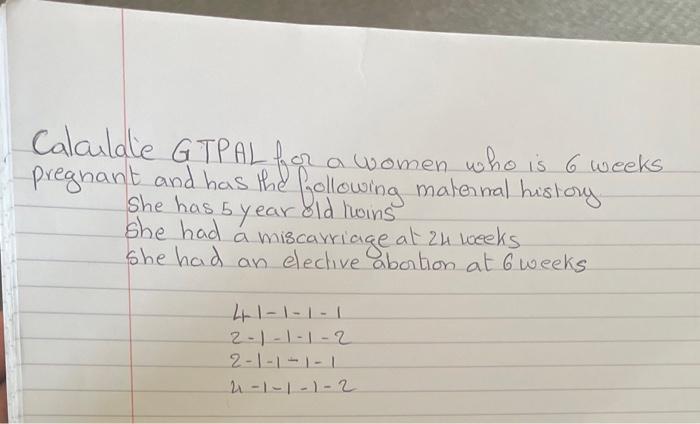 Calculate GTPAL for a women who is 6 weeks
pregnant and has the following maternal history
She has 5 year old twins
She had a miscarriage at 24 weeks
She had an elective abortion at 6 weeks
4 1-1-1-1
2-1-1-1-2
2-1-1-1-1
4-1-1-1-2